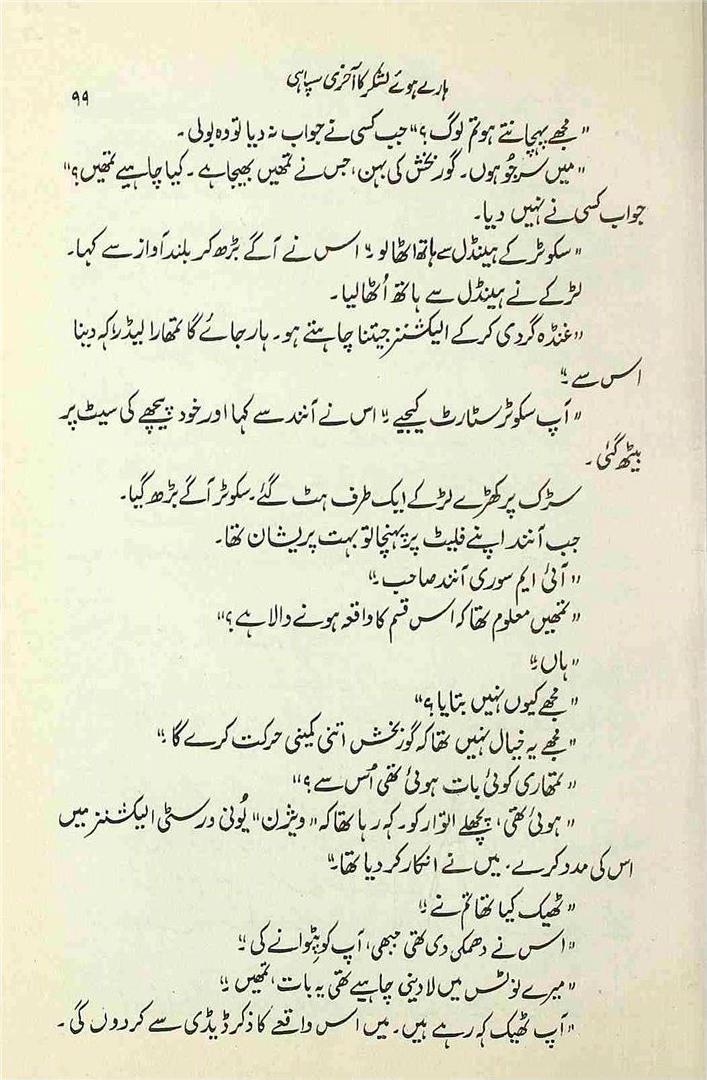 ہارے ہوئے لشکر کا آخری سپاہی
۹۹
"مجھے پہچانتے ہو تم لوگ؟" جب کسی نے جواب نہ دیا تو وہ بولی۔
"میں سرجُو ہوں۔ گوربخش کی بہن، جس نے تمھیں بھیجا ہے۔ کیا چاہیے تمھیں؟"
جواب کسی نے نہیں دیا۔
"سکوٹر کے ہینڈل سے ہاتھ اٹھا لو۔" اس نے آگے بڑھ کر بلند آواز سے کہا۔
لڑکے نے ہینڈل سے ہاتھ اُٹھا لیا۔
"غنڈہ گردی کر کے الیکشنز جیتنا چاہتے ہو۔ ہار جائے گا تمھارا لیڈر، کہہ دینا
اس سے۔"
"آپ سکوٹر سٹارٹ کیجیے۔" اس نے آنند سے کہا اور خود پیچھے کی سیٹ پر
بیٹھ گئی۔
سڑک پر کھڑے لڑکے ایک طرف ہٹ گئے۔ سکوٹر آگے بڑھ گیا۔
جب آنند اپنے فلیٹ پر پہنچا تو بہت پریشان تھا۔
"آئی ایم سوری آنند صاحب۔"
"تمھیں معلوم تھا کہ اس قسم کا واقعہ ہونے والا ہے؟"
"ہاں۔"
"مجھے کیوں نہیں بتایا؟"
"مجھے یہ خیال نہیں تھا کہ گوربخش اتنی کمینی حرکت کرے گا۔"
"تمھاری کوئی بات ہوئی تھی اُس سے؟"
"ہوئی تھی، پچھلے اتوار کو۔ کہہ رہا تھا کہ "ویژن" یُونی ورسٹی الیکشنز میں
اس کی مدد کرے۔ میں نے انکار کر دیا تھا۔"
"ٹھیک کیا تھا تم نے۔"
"اس نے دھمکی دی تھی مجھی، آپ کو پِٹوانے کی۔"
"میرے نوٹس میں لا دینی چاہیے تھی یہ بات، تمھیں۔"
"آپ ٹھیک کہہ رہے ہیں۔ میں اس واقعے کا ذکر ڈیڈی سے کر دوں گی۔